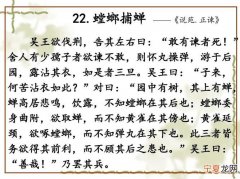 22. 螳螂捕蝉
《说苑.正谏》
吴王欲伐荆，告其左右曰：“敢有谏者死！”
舍人有少孺子者欲谏不敢，则怀丸操弹，游于后
园，露沾其衣，如是者三旦。吴王曰：“子来，
何苦沾衣如此？”对曰：“园中有树，其上有蝉，
蝉高居悲鸣，饮露，不知螳螂在其后也；螳螂委
身曲附，欲取蝉，而不知黄雀在其傍也；黄雀延
颈，欲啄螳螂，而不知弹丸在其下也。此三者皆
务欲得其前利，而不顾其后之患也。”吴王曰：
“善哉！”乃罢其兵。